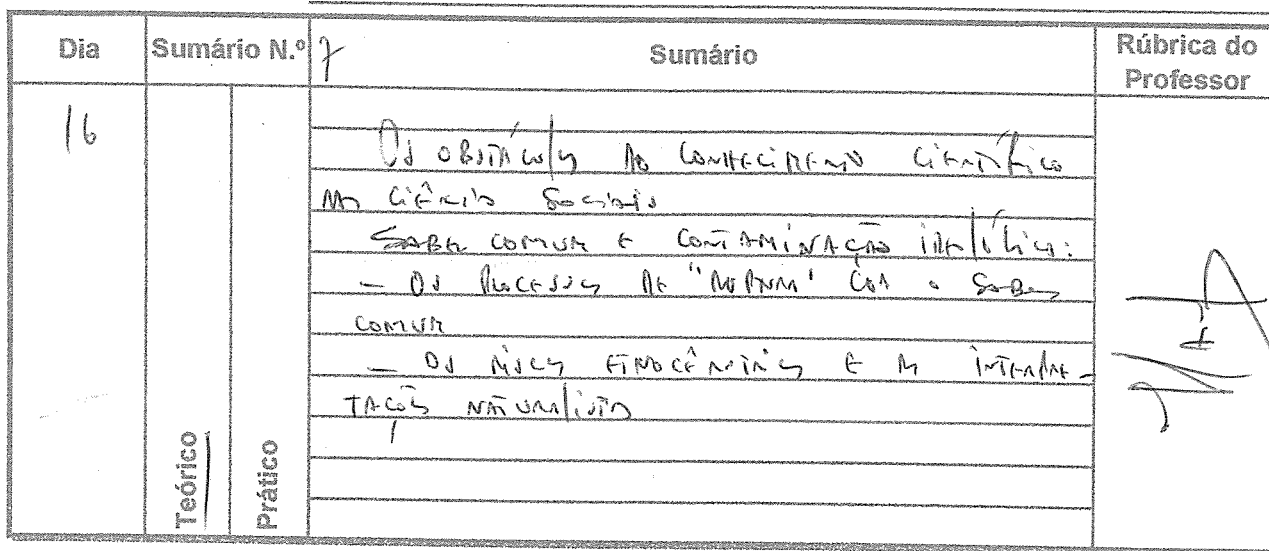 Dia Sumário N.º 7 Sumário Rúbrica do Professor
16
Os obstáculos ao conhecimento científico
nas ciências sociais
Saber comum e contaminação ideológica:
- Os processos de "ruptura" com o saber
comum
- Os riscos etnocêntricos e as interpre-
tações naturalistas
Teórico
Prático